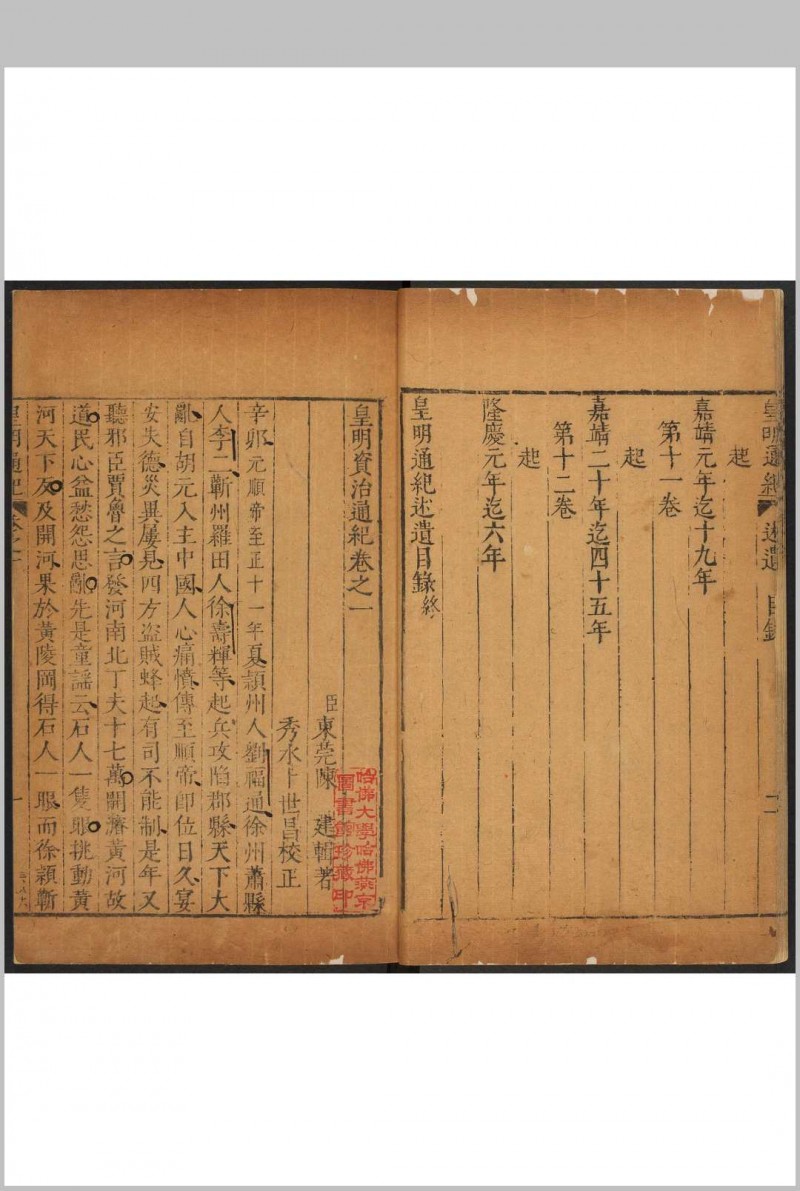 起
嘉靖元年迄十九年
第十一卷
起
嘉靖二十年迄四十五年
第十二卷
起
隆慶元年迄六年
皇明通紀述遺目錄終
皇明通紀 述遺 目錄 二
皇明資治通紀卷之一
臣東莞陳 建輯著
秀水卜世昌校正
哈佛大學哈佛燕京
圖書館珍藏印
辛卯元順帝至正十一年夏潁州人劉福通徐州蕭縣
人李二蘄州羅田人徐壽輝等起兵攻陷郡縣天下大
亂自胡元入主中國人心痛憤傳至順帝即位日久宴
安失德災異屢見四方盜賊蜂起有司不能制是年又
聽邪臣賈魯之言發河南北丁夫十七萬開濬黃河故
道民心益愁怨思亂先是童謡云石人一隻眼挑動黃
河天下反及開河果於黃陵岡得石人一眼而徐潁蘄
皇明通紀 卷之一 一